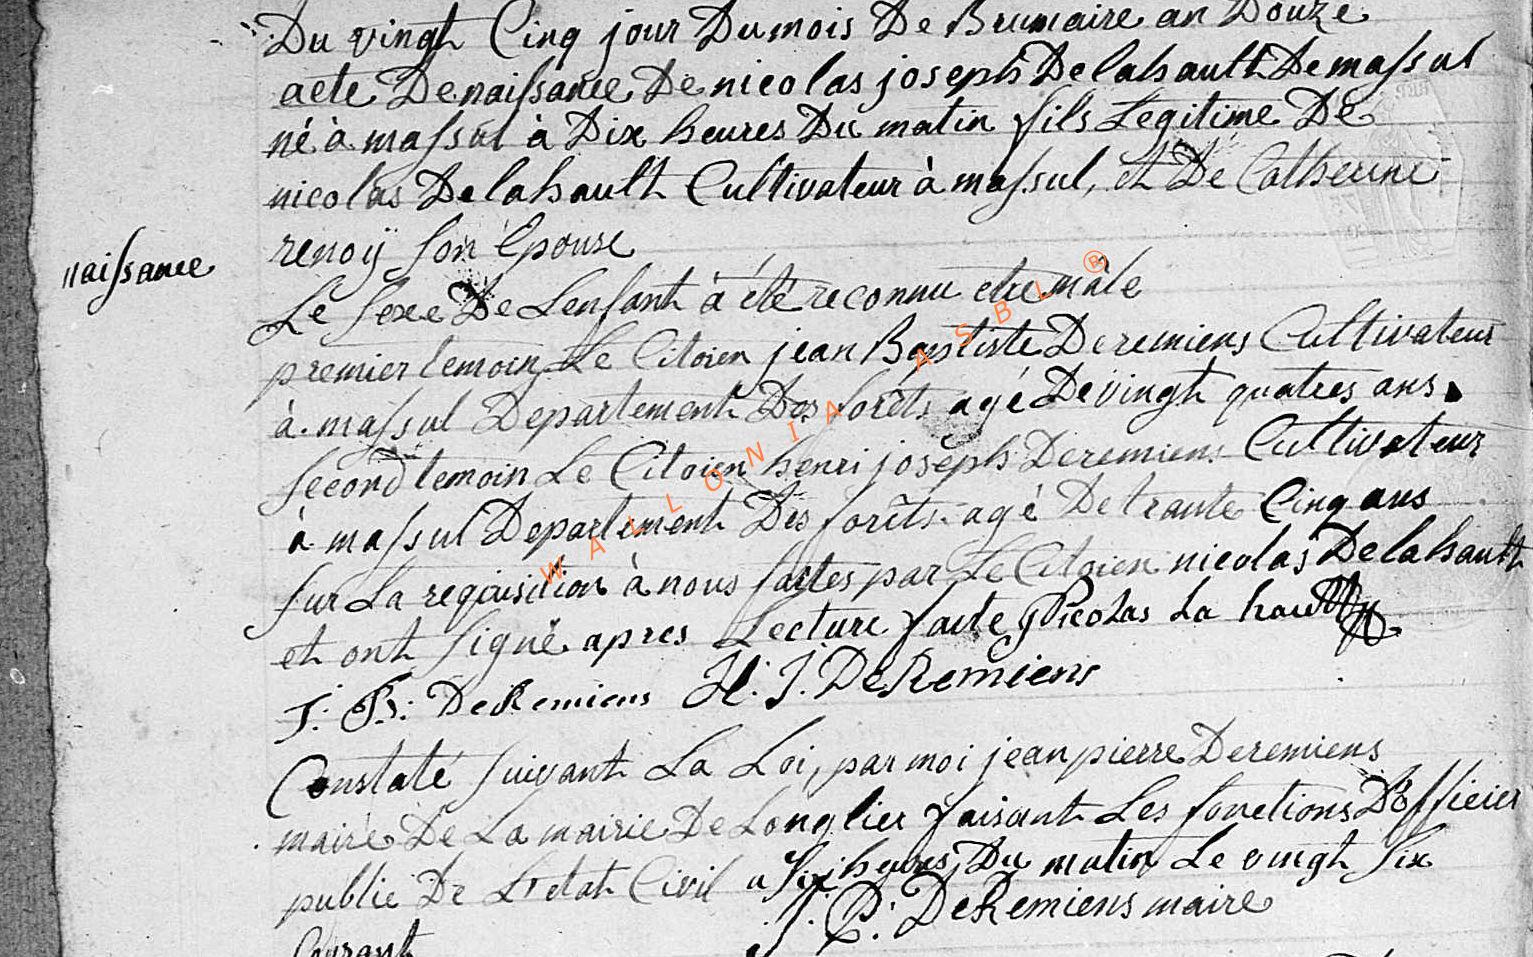 Du vingt Cinq jour Du mois De Brumaire an Douze
acte De naissance De nicolas joseph Delahault De massul
né à massul à Dix heures Du matin fils Legitime De
nicolas Delahault Cultivateur à massul, et De Catherine
naissance
renoÿ son Epouse
Le sexe De Lenfant à été reconnu etre mâle
premier temoin Le Citoien jean Baptiste Deremiens Cultivateur
à massul Departement Des forêts agé De vingt quatres ans
second temoin Le Citoien henri joseph Deremiens Cultivateur
à massul Departement Des forêts agé De trante Cinq ans
sur La requisition à nous faites par Le Citoien nicolas Delahault
et ont signé apres Lecture faite Nicolas La hault
J: B: DeRemiens H. J. DeRemiens
Constaté suivant La Loi, par moi jean pierre Deremiens
maire De La mairie De Longlier faisant Les fonctions D'officier
public De L'etat Civil a six heures Du matin Le vingt six
Courant
J: P: DeRemiens maire
WALLONIA ASBL ®